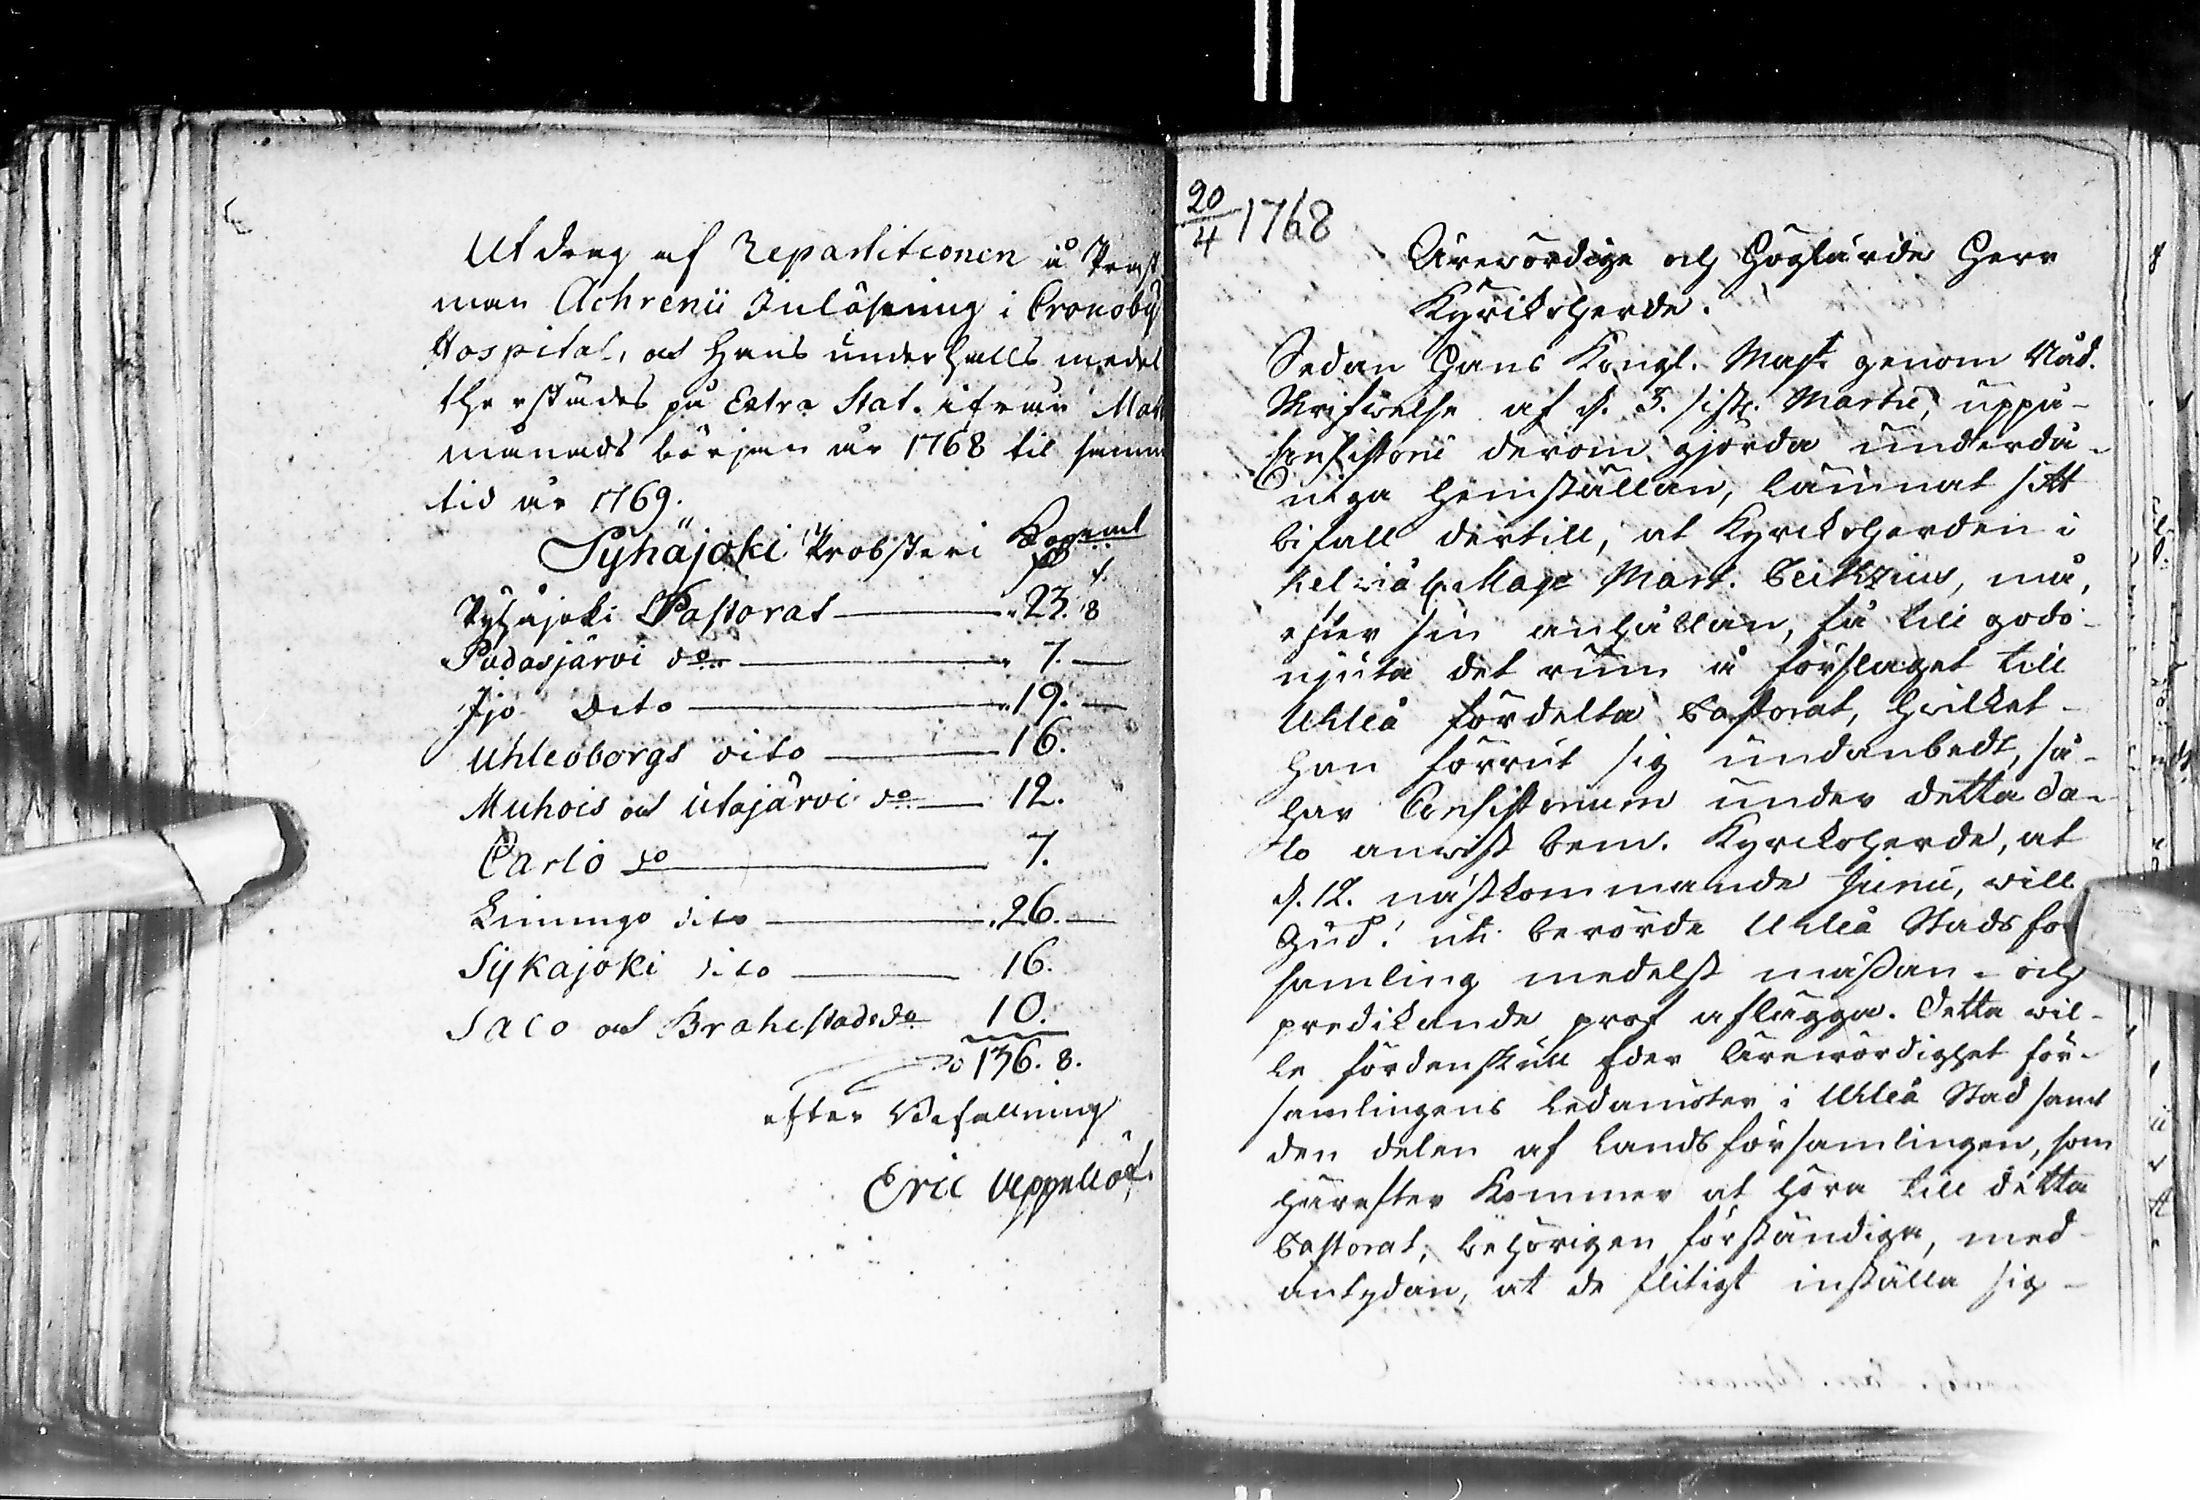 Utdrag af Repartitionen å Prest
man Achrenii Inlösning i Cronoby
Hospital, och Hans underhålls medel
therstädes på Extra Stat. ifrån Mars
månads början år 1768 til samma
tid år 1769.
Pyhäjoki Probsteri Kopp.mt
Pyhäjoki Pastorat 23. 8
Pudasjärvi do 7. —
Ijo Dito 19. —
Uhleoborgs dito 16.
Muhois och Utajärvi do 12.
Carlö do 7.
Limingo dito 26. —
Sijkajoki dito 16.
Salo och Brahestads do 10.
136. 8.
efter Befallning
Eric Uppellöf.
20/4 1768
Ärewördige och Höglärde Herr
Kyrikoherde.
Sedan Hans Kongl. Majt. genom Nåd.
Skrifwelse af d. 3. sistl. Martii, uppå
Consistorii derom gjorda underdå-
niga hemställan, lämnat sitt
bifall dertill, at Kyrckoherden i
Kelviå H. Mag. Mart. , må,
efter sin anhållan, få till godo
njuta det rum å förslaget till
Uhleå fördelta Pastorat, hwilket
han förrut sig undanbedt, så
har Consistorium under detta da-
to anvist bem. Kyrckoherde, at
d. 12. nästkommande Junii, will
Gud! uti berörde Uhleå Stads för
samling medelst mässan- och
predikande prof aflägga. Detta wil-
le fördenskull Eder Ärewördighet för-
samlingens ledamöter i Uhleå Stad samt
den delen af landsförsamlingen, som
härefter kommer at höra till detta
Pastorat, behörigen förständiga, med
antydan, at de flitigt inställa sig